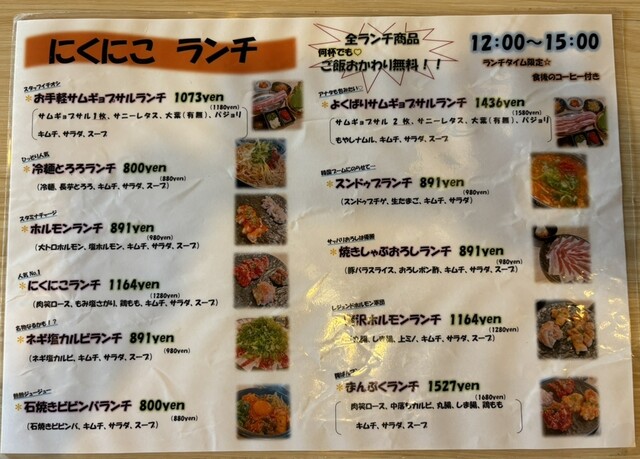 にくにこ ランチ
全ランチ商品
何杯でも♡
ご飯おかわり無料！！
12:00～15:00
ランチタイム限定☆
食後のコーヒー付き
スタッフイチオシ
*お手軽サムギョプサルランチ 1073yen
(1180yen)
サムギョプサル1枚、サニーレタス、大葉(有無)、パジョリ
キムチ、サラダ、スープ
ひっそり人気
*冷麺とろろランチ 800yen
(880yen)
(冷麺、長芋とろろ、キムチ、サラダ、スープ)
スタミナチャージ
*ホルモンランチ 891yen
(980yen)
(大トロホルモン、塩ホルモン、キムチ、サラダ、スープ)
人気No.1
*にくにこランチ 1164yen
(1280yen)
(肉笑ロース、もみ塩さがり、鶏もも、キムチ、サラダ、スープ)
名物なるかも！？
*ネギ塩カルビランチ 891yen
(980yen)
(ネギ塩カルビ、キムチ、サラダ、スープ)
熱熱ジュージュー
*石焼きビビンバランチ 800yen
(880yen)
(石焼きビビンバ、キムチ、サラダ、スープ)
アナタも包みたい
*よくばりサムギョプサルランチ 1436yen
(1580yen)
サムギョプサル 2 枚、サニーレタス、大葉(有無)、パジョリ
もやしナムル、キムチ、サラダ、スープ
韓国ブームにのらせて…
*スンドゥブランチ 891yen
(980yen)
(スンドゥブチゲ、生たまご、キムチ、サラダ)
サッパリおろしは優勝
*焼きしゃぶおろしランチ 891yen
(980yen)
(豚バラスライス、おろしポン酢、キムチ、サラダ、スープ)
レジェンドホルモン軍団
沢ホルモンランチ 1164yen
(1280yen)
腸、しま腸、上ミノ、キムチ、サラダ、スープ)
まんぷくランチ 1527yen
(1680yen)
肉笑ロース、中落ちカルビ、丸腸、しま腸、鶏もも
キムチ、サラダ、スープ